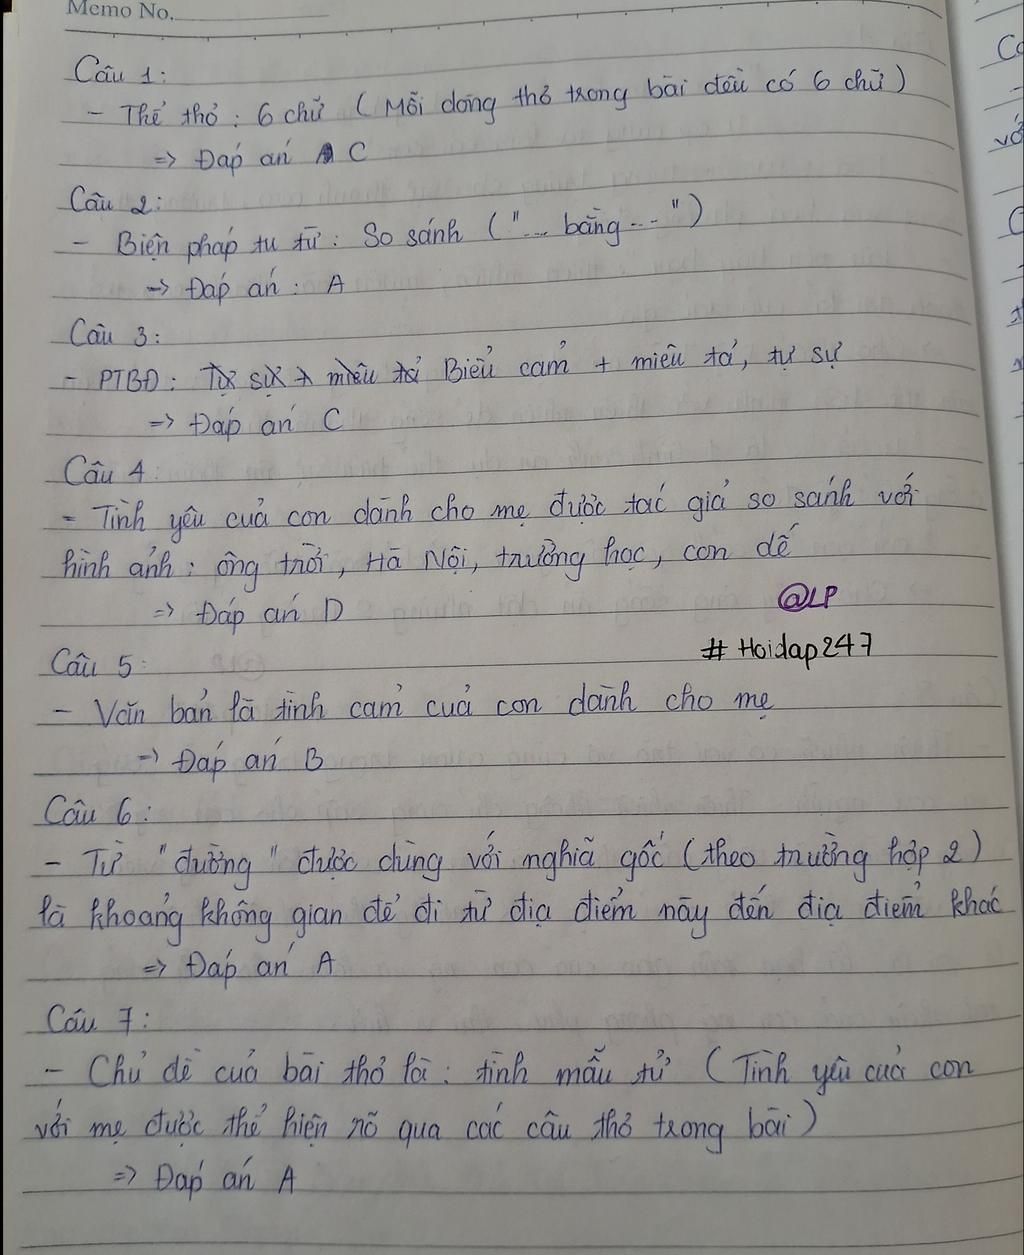 Memo No.
Câu 1:
- Thể thơ: 6 chữ (Mỗi dòng thơ trong bài đều có 6 chữ)
=> Đáp án C
Câu 2:
- Biện pháp tu từ: So sánh ("... bằng...")
=> Đáp án: A
Câu 3:
- PTBĐ: Tự sự + miêu tả Biểu cảm + miêu tả, tự sự
=> Đáp án C
Câu 4
- Tình yêu của con dành cho mẹ được tác giả so sánh với
hình ảnh: ông trời, Hà Nội, trường học, con dế
=> Đáp án D
@LP
# Hoidap247
Câu 5:
- Văn bản là tình cảm của con dành cho mẹ
=> Đáp án B
Câu 6:
- Từ "đường" được dùng với nghĩa gốc (theo trường hợp 2)
là khoảng không gian để đi từ địa điểm này đến địa điểm khác
=> Đáp án A
Câu 7:
- Chủ đề của bài thơ là: tình mẫu tử (Tình yêu của con
với mẹ được thể hiện rõ qua các câu thơ trong bài)
=> Đáp án A